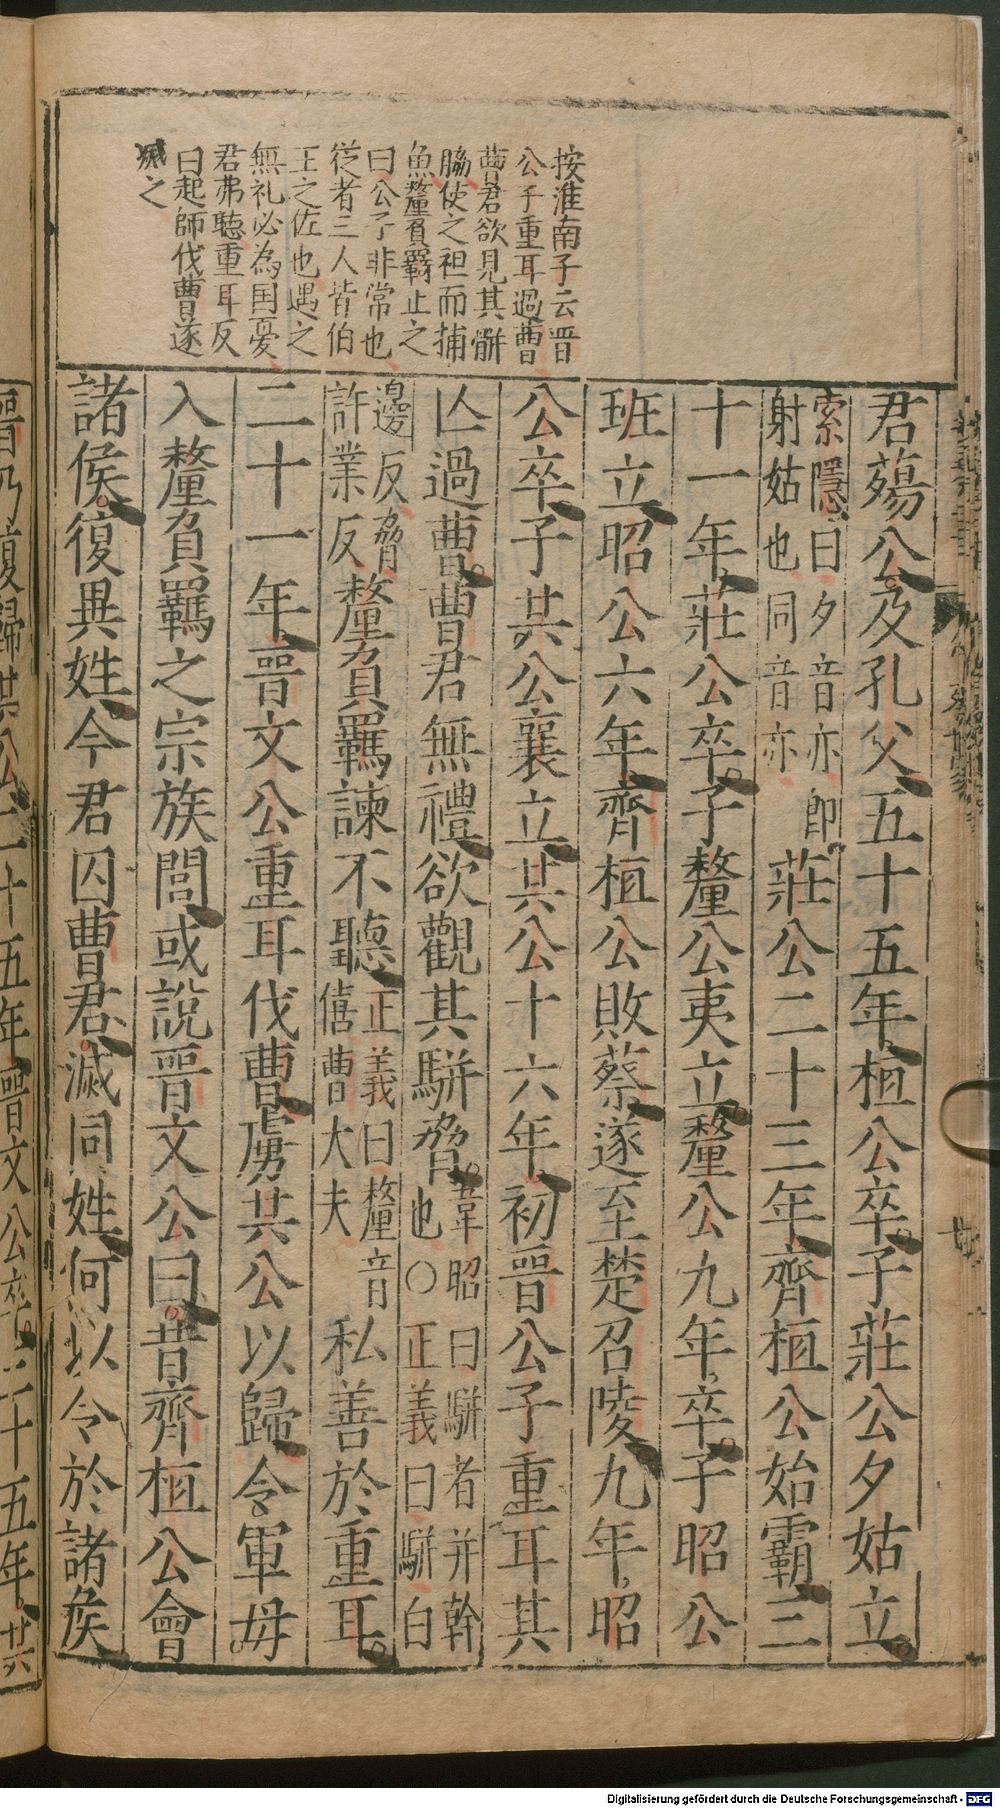 按淮南子云晉
公子重耳過曹
曹君欲見其骿
脇使之袒而捕
魚釐負羈止之
曰公子非常也
從者三人皆伯
王之佐也遇之
無礼必為国憂
君弗聽重耳反
曰起師伐曹遂
滅之
君殤公及孔父五十五年桓公卒子莊公夕姑立
索隱曰夕音亦即
射姑也同音亦
莊公二十三年齊桓公始霸三
十一年莊公卒子釐公夷立釐公九年卒子昭公
班立昭公六年齊桓公敗蔡遂至楚召陵九年昭
公卒子共公襄立共公十六年初晉公子重耳其
亾過曹曹君無禮欲觀其駢脅
韋昭曰駢者并幹
也○正義曰駢白
邊反脅
許業反
釐負羈諫不聽
正義曰釐音
僖曹大夫
私善於重耳
二十一年晉文公重耳伐曹虜共公以歸令軍毋
入釐負羈之宗族閭或說晉文公曰昔齊桓公會
諸侯復異姓今君囚曹君滅同姓何以令於諸侯
晉乃復歸共公二十五年晉文公卒三十五年共
Digitalisierung gefördert durch die Deutsche Forschungsgemeinschaft - DFG